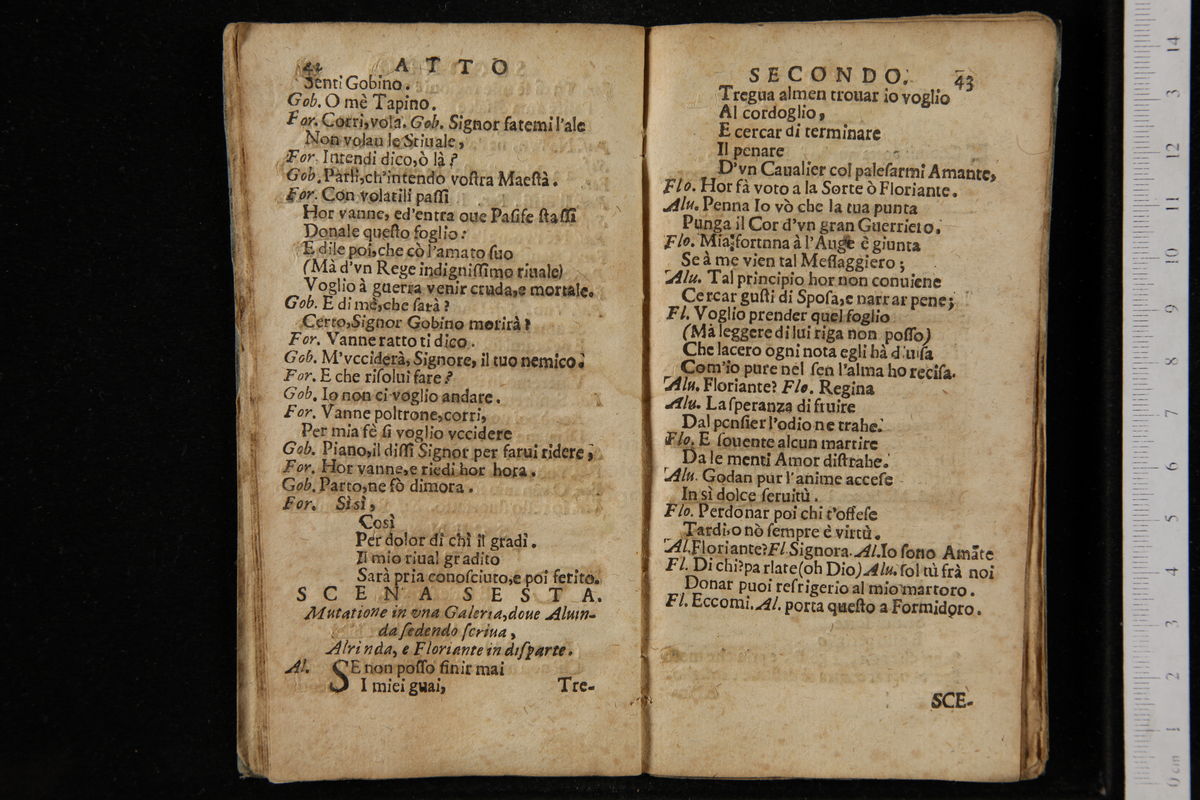 42 ATTO
Senti Gobino.
Gob. O mè Tapino.
For. Corri, vola. Gob. Signor fatemi l'ale
Non volan le Stiuale,
For. Intendi dico, ò là?
Gob. Parli, ch'intendo vostra Maestà.
For. Con volatili passi
Hor vanne, ed'entra oue Pasife stassi
Donale questo foglio:
E dile poi, che cò l'amato suo
(Mà d'vn Rege indignissimo riuale)
Voglio à guerra venir cruda, e mortale.
Gob. E di mè, che sarà?
Certo, Signor Gobino morirà?
For. Vanne ratto ti dico.
Gob. M'vcciderà, Signore, il tuo nemico.
For. E che risolui fare?
Gob. Io non ci voglio andare.
For. Vanne poltrone, corri,
Per mia fè si voglio vccidere
Gob. Piano, il dissi Signor per farui ridere;
For. Hor vanne, e riedi hor hora.
Gob. Parto, ne fò dimora.
For. Sì sì,
Così
Per dolor di chì il gradì.
Il mio riual gradito
Sarà pria conosciuto, e poi ferito.
SCENA SESTA.
Mutatione in vna Galeria, doue Aluin-
da sedendo scriua,
Alrinda, e Floriante in disparte.
Al. SE non posso finir mai
I miei guai,
Tre-
SECONDO. 43
Tregua almen trouar io voglio
Al cordoglio,
E cercar di terminare
Il penare
D'vn Caualier col palesarmi Amante,
Flo. Hor fà voto a la Sorte ò Floriante.
Alu. Penna Io vò che la tua punta
Punga il Cor d'vn gran Guerriero.
Flo. Mia fortnna à l'Auge è giunta
Se à me vien tal Messaggiero;
Alu. Tal principio hor non conuiene
Cercar gusti di Sposa, e narrar pene;
Fl. Voglio prender quel foglio
(Mà leggere di lui riga non posso)
Che lacero ogni nota egli hà d'uisa
Com'io pure nel sen l'alma ho recisa.
Alu. Floriante? Flo. Regina
Alu. La speranza di fruire
Dal pensier l'odio ne trahe.
Flo. E souente alcun martire
Da le menti Amor distrahe.
Alu. Godan pur l'anime accese
In sì dolce seruitù.
Flo. Perdonar poi chi t'offese
Tardi, o nò sempre è virtù.
Al. Floriante? Fl Signora. Al. Io sono Amāte
Fl. Di chi? parlate (oh Dio) Alu. sol tù frà noi
Donar puoi refrigerio al mio martoro.
Fl. Eccomi. Al. porta questo a Formidoro.
SCE-